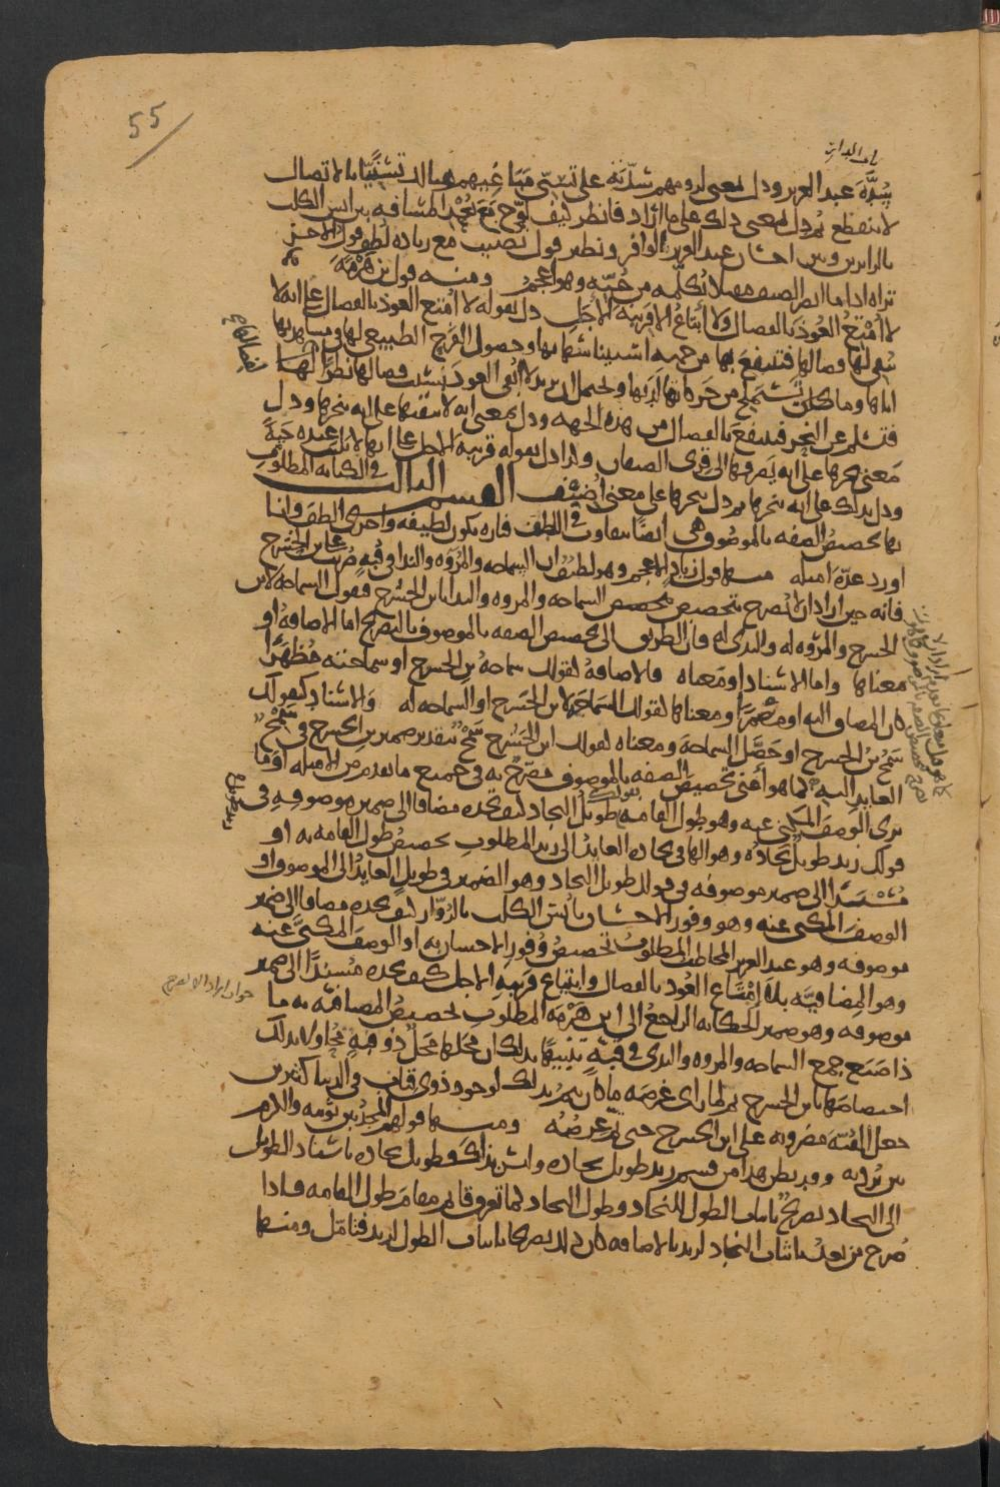 55
سُدَّة عبد العزيز ودل بمعنى لزومهم سُدّته على تسنى مباغيهم هنالك تسنيا بالاتصال
لا ينقطع ثم دل بمعنى ذلك على ما اراد فانظر كيف لوح مع بُعد المسافة بين انس الكلب
بالزائرين وبين احسان عبد العزيز الوافر ونظير قول نصيب مع زيادة لطف قول الاخر
تراه اذا ما ابصر الضيف مقبلا يُكلّمه من حُبّه وهو اعجم ومنه قول ابن هَرْمَة
لا أُمْتِعُ العُوذَ بالفصال وَلا أبتاعُ الا قريبةَ الأجلِ دل بقوله لا امتع العوذ بالفصال على انه لا
يبقي لها فصالها فتنتفع بها من جهة استيناسها بها وحصول الفرح الطبيعي لها في مشاهدتها
اياها وما كان يشتملح من حركاتها لديها ويحتمل ان يريد لا أُبقي العوذ بسبب فصالها نظرا لها
فتسلم عن النحر فينتفع بالفصال من هذه الجهة ودل بمعنى انه لا يبقيها على انه ينحرها ودل
مَعنى نحرها على انه يصرفها الى قِرى الضيفان وكذا دل بقوله قريبة الاجل على انها لا تلبث عنده حيةً
ودل بذلك على انه ينحرها ثم دل بنحرها على معنى أُضيِّف القسم الثالث في الكناية المطلوب
بها تخصيص الصفة بالموصوف هي ايضا تتفاوت في اللطف فتارة تكون لطيفة واخرى الطف وانا
اورد عدة امثلة منها قول زياد الاعجم وهو لطيف ان السماحة والمروة والندى في قبة ضربت على ابن الحشرج
فانه حين اراد ان لا يصرح بتخصيص السماحة والمروة والندى بابن الحشرج فيقول السماحة لابن
الحشرج والمروة له والندى له فان الطريق الى تخصيص الصفة بالموصوف بالتصريح اما الاضافة او
معناها واما الاسناد او معناه فالاضافة كقولك سماحة ابن الحشرج او سماحته مُظهَرًا
كان المضاف اليه او مضمرًا ومعناها كقولك السَمَاحَة لابن الحشرج او السماحة له والاسناد كقولك
سَمُحَ ابن الحشرج او حَصَل السماحة ومعناه كقولك ابن الحشرج سَمْح بتقدير ضمير ابن الحشرج في سَمْح
العايد اليه كما هو أعني تخصيص الصفة بالموصوف مصرح به في جميع ما تقدم من الامثلة أوَمَا
ترى الوصف المكنى عنه وهو طول القامة بقولك طويل النجاد كيف تجده مضافا الى ضمير موصوفه في
قولك زيد طويل نجاده وهو الهاء في نجاده العايد الى زيد المطلوب تخصيص طول القامة به او
مُسْنَدًا الى ضمير موصوفه في قولك طويل النجاد وهو الضمير في طويل العايد الى الموصوف او
الوصف المكنى عنه وهو وفور الاحسان بانس الكلب بالزوّار كيف تجده مضافا الى ضمير
موصوفه وهو عبد العزيز المخاطب المطلوب تخصيص وفور الاحسان به او الوصف المكنى عنه
وهو المضيافية بلا امتاع العوذ بالفصال وابتياع قريبة الاجل كيف تجده مُسندًا الى ضمير
موصوفه وهو ضمير الحكاية الراجع الى ابن هَرْمة المطلوب تخصيص المضيافية به ما
ذا صَنَع جمع السماحة والمروة والندى في قبةٍ تنبيهًا بذلك ان محلها محل ذو قبةٍ محاولا بذلك
اختصاصها بابن الحشرج ثم لما راى غرضه ما كان يتم بذلك لوجود ذوي قباب في الدنيا كثيرين
جعل القبة مضروبة على ابن الحشرج حتى تم غرضُه ومنها قولهم المجد بين ثوبيه والكرم
بين بُرديه وقد يظن هذا من قسم زيد طويل نجاده وليس بذاك فطويل نجاده باسناد الطويل
الى النجاد تصريح باثبات الطول للنجاد وطول النجاد كما تعرف قايم مقام طول القامة فاذا
صُرح من بعد باثبات النجاد لزيد بالاضافة كان ذلك تصريحا باثبات الطول لزيد فتامل ومنها